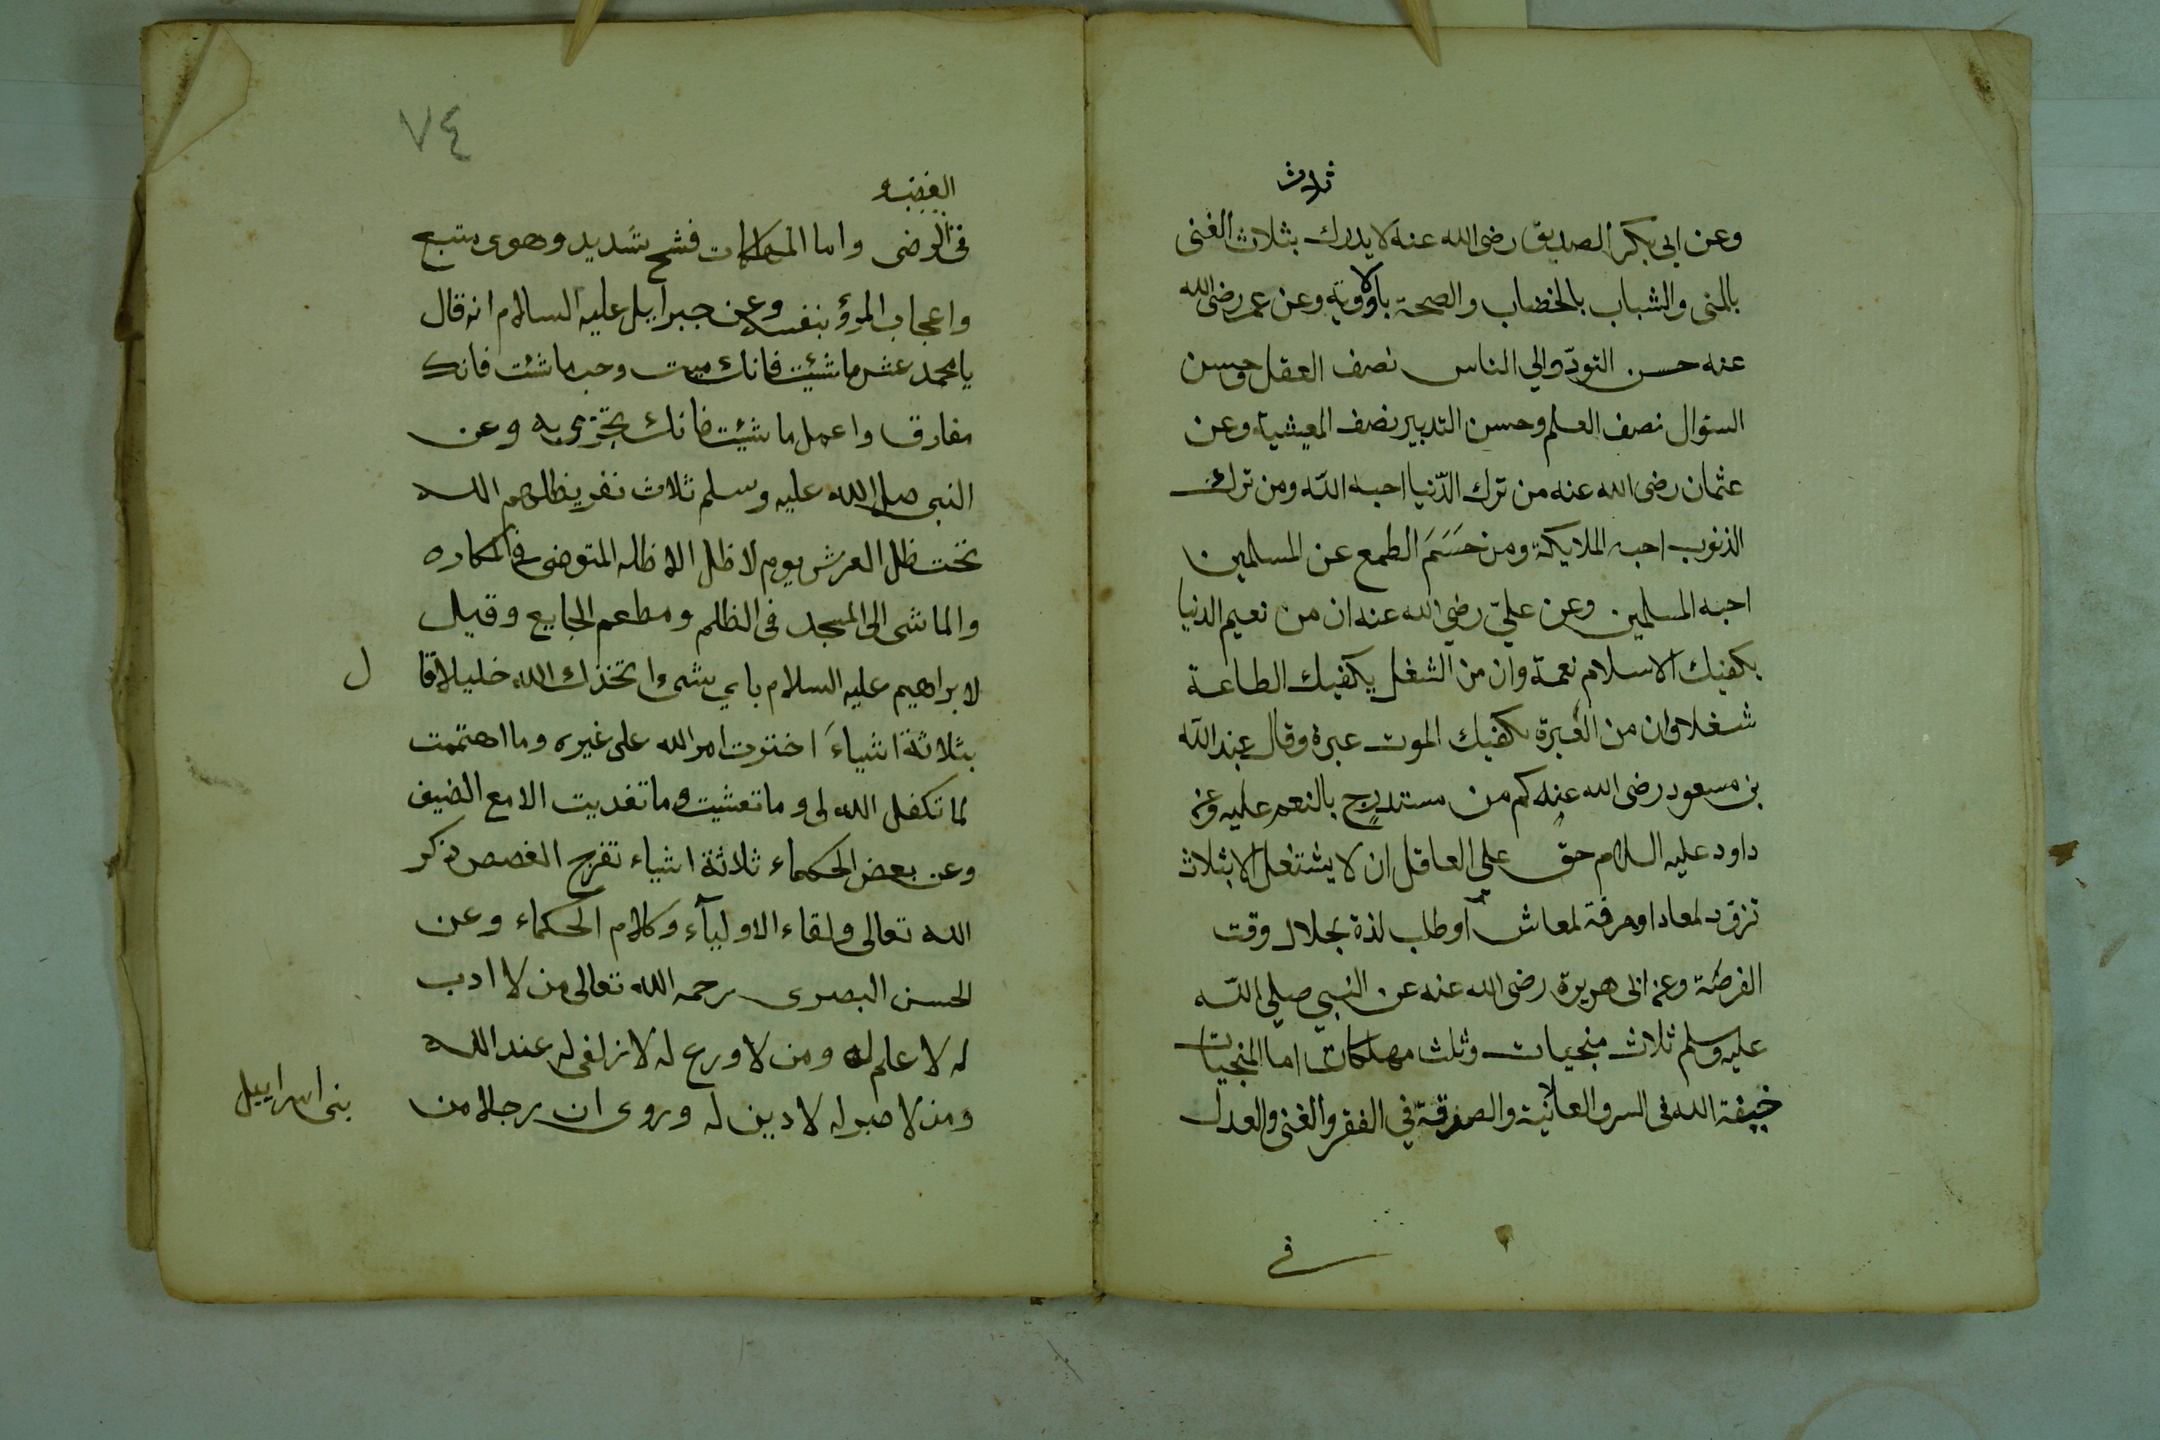 ثلاث
وعن ابى بكر الصديق رضى الله عنه لا يدرك بثلاث الغنى
بالمنى والشباب بالخضاب والصحة بالاوية وعن عمر رضى الله
عنه حسن التودّد الي الناس نصف العقل وحسن
السؤال نصف العلم وحسن التدبير نصف المعيشية وعن
عثمان رضى الله عنه من ترك الدّنيا احبه اللّه ومن ترك
الذنوب احبه الملايكة ومن حَسَمَ الطمع عن المسلمين
احبه المسلمين وعن عليّ رضي الله عنه ان من نعيم الدنيا
يكفيك الاسلام نعمة وان من الشغل يكفيك الطاعة
شغلا وان من العبرة يكفيك الموت عبرة وقال عبد اللّه
بن مسعود رضى الله عنه كم من مستدرج بالنعم عليه وعن
داود عليه السلام حق علي العاقل ان لا يشتغل الا بثلاث
تزوّد لمعاد او حرفة لمعاش او طلب لذة بحلال وقت
الفرصة وعن ابى هريرة رضى الله عنه عن النبي صلي اللّه
عليه وسلم ثلاث منجيات وثلث مهلكات اما المنجيات
خيفة الله فى السر والعلانية والصدقة في الفقر والغنى والعدل
فى
٧٤
الغضب و
فى الرضى واما المهلكات فشح شديد وهوى متبع
واعجاب المرؤ بنفسه وعن جبرايل عليه السلام انه قال
يا محمد عش ما شئيت فانك ميت وحب ما شئت فانك
مفارق واعمل ما شئيت فانك تجزى به وعن
النبى صلى الله عليه وسلم ثلاث نفر يظلهم الله
تحت ظل العرش يوم لا ظل الا ظله المتوضى فى المكاره
والماشى الى المسجد فى الظلم ومطعم الجايع وقيل
لابراهيم عليه السلام باي شىء اتخذك الله خليلا قا ل
بثلاثة اشياءَ اخترت امر الله على غيره وما اهتممت
لما تكفل الله لى وما تعشيت وما تغديت الا مع الضيف
وعن بعض الحكماء ثلاثة اشياء تفرج الغصص ذكر
الله تعالى ولقاء الاوليآء وكلام الحكماء وعن
الحسن البصرى رحمه الله تعالى من لا ادب
له لا علم له ومن لا ورع له لا زلفى له عند الله
ومن لا صبر له لا دين له وروى ان رجلا من بنى اسراييل